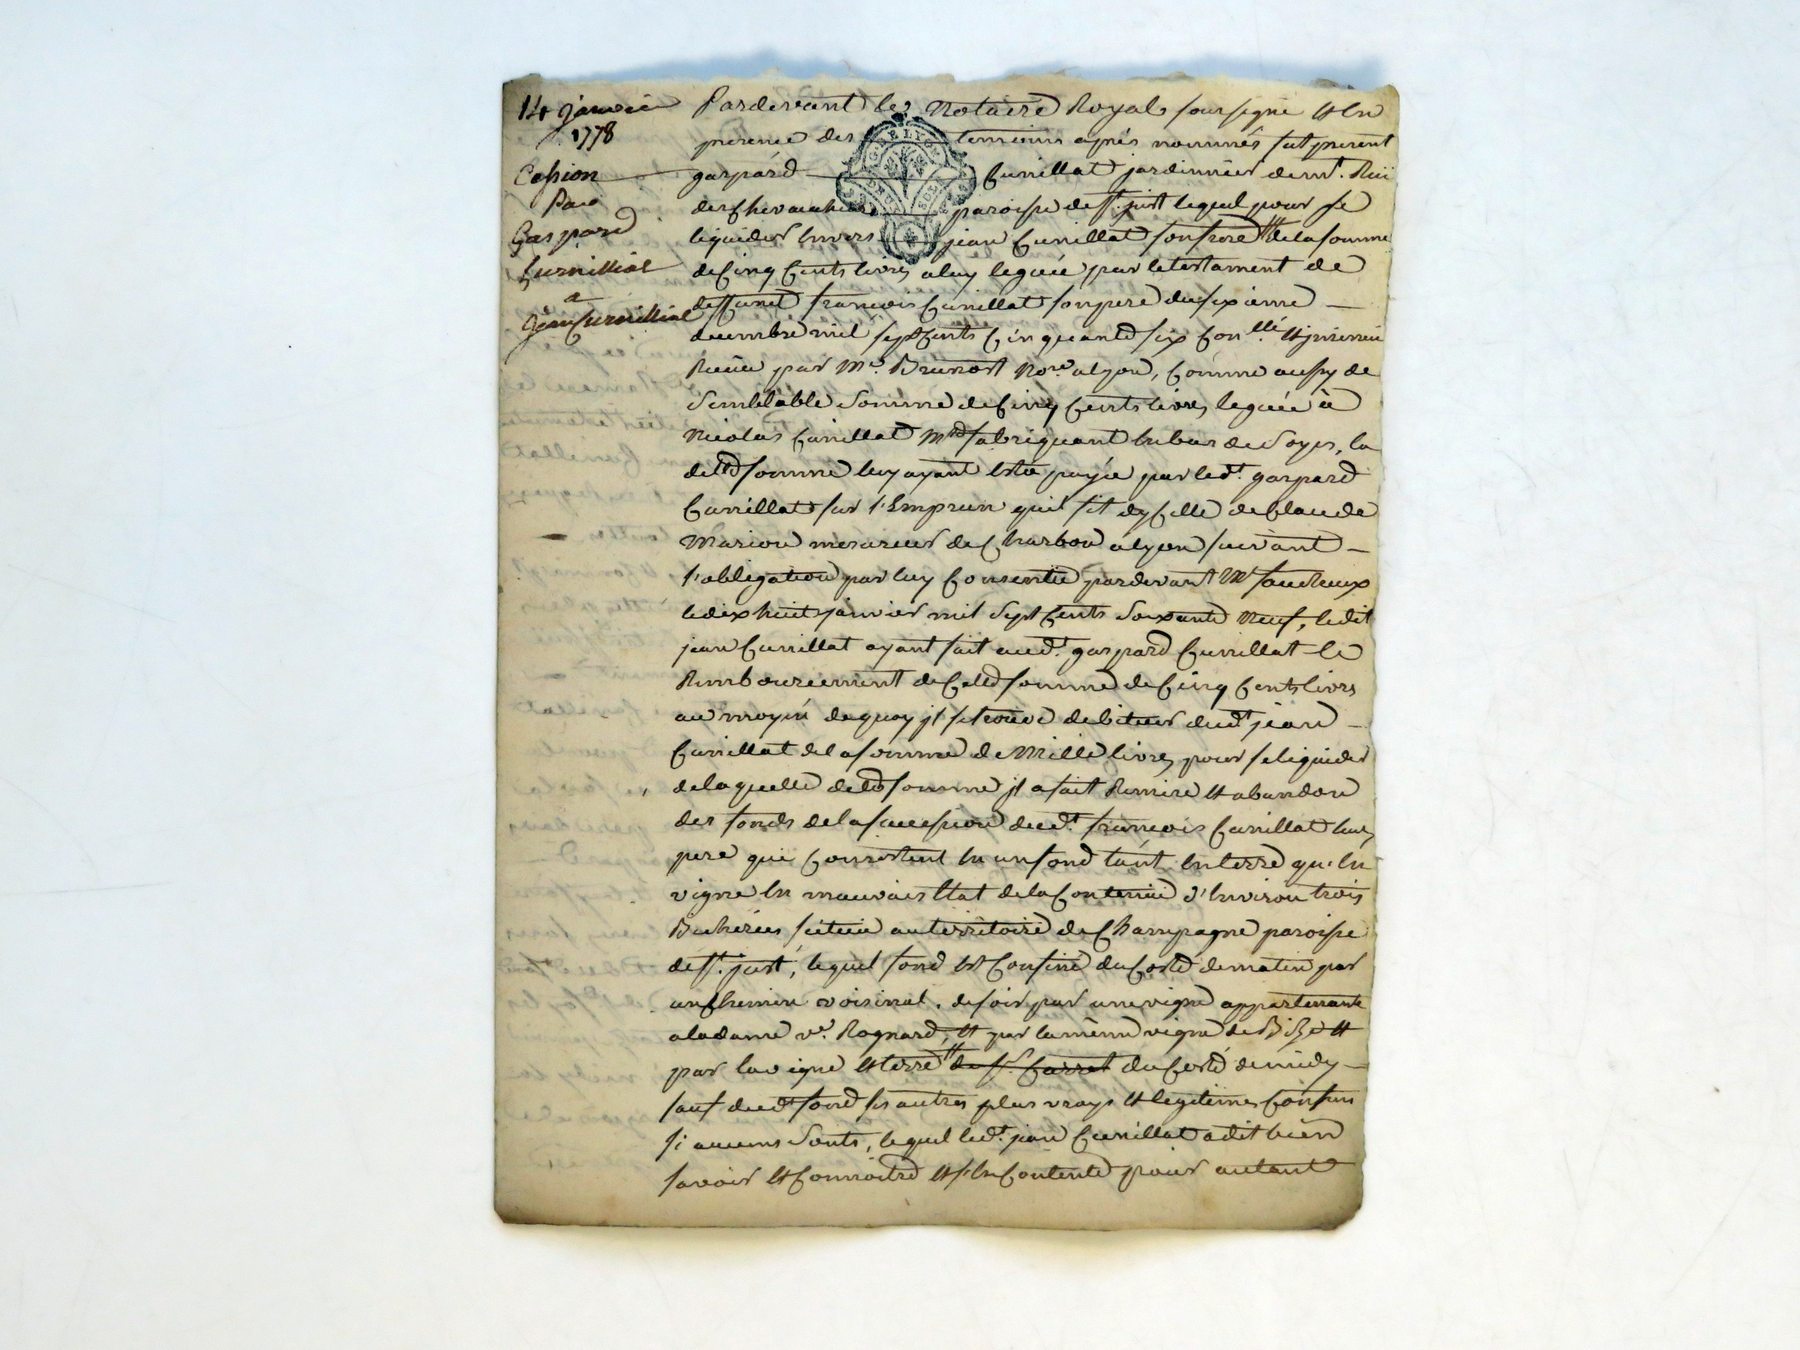 14 janvier
1778
Cession
Par
Gaspard
Curnilliat
a
Jean Curnilliat
Pardevant les Notaire Royal soussigné et en
presence des temoins aprés nommés fut present
gaspard Curnillat jardinnier de mr.
paroisse de st. just lequel pour se
liquider envers jean Curnillat son frere de la somme
de Cinq Cents livres a luy leguée par le testament de
deffunct francois Curnillat son pere du sixieme
decembre mil sept Cents Cinquante six Con.llé et
Receu par Me. Brunost Nore. a lyon, Comme aussy de
Semblable Somme de Cinq Cents livres leguée à
Nicolas Curnillat md fabriquant en bas de Soyes, la
de.tte somme luy ayant esté payée par led.t gaspard
Curnillat sur l'Emprun quil fit dyCelle de Claude
Marion mesureur de Charbon a lyon suivant
l'obligation par luy Consentie pardevant Me
le dix huit janvier mil Sept Cents Soixante Neuf, ledit
jean Curnillat ayant fait aud.t gaspard Curnillat le
Rembourcement de Cette somme de Cinq Cents livres
au moyen de quoy jl se trouve debiteur dud.t jean
Curnillat de la somme de Mille livres, pour se liquider
de laquelle de.tte somme jl a fait Remise et abandon
des fonds de la succession dud.t francois Curnillat leur
pere qui Consistent en un fond tant en terre qu'en
vigne en mauvais Etat de la Contenue d'Environ trois
Bicherées scituée au territoire de Champagne paroisse
de st. just, lequel fond est Confiné du Costé de matin par
un Chemin voisinal, de soir par une vigne appartenante
a la dame ve. Rognard, et par la même vigne de Bize et
par la vigne et terre du sr. Carret du Costé de midy
sauf dud.t fond ses autres plus vrays et legitimes Confins
si aucuns Sonts, lequel led.t jean Curnillat a dit bien
savoir et Connoitre et s'en Contente pour autant